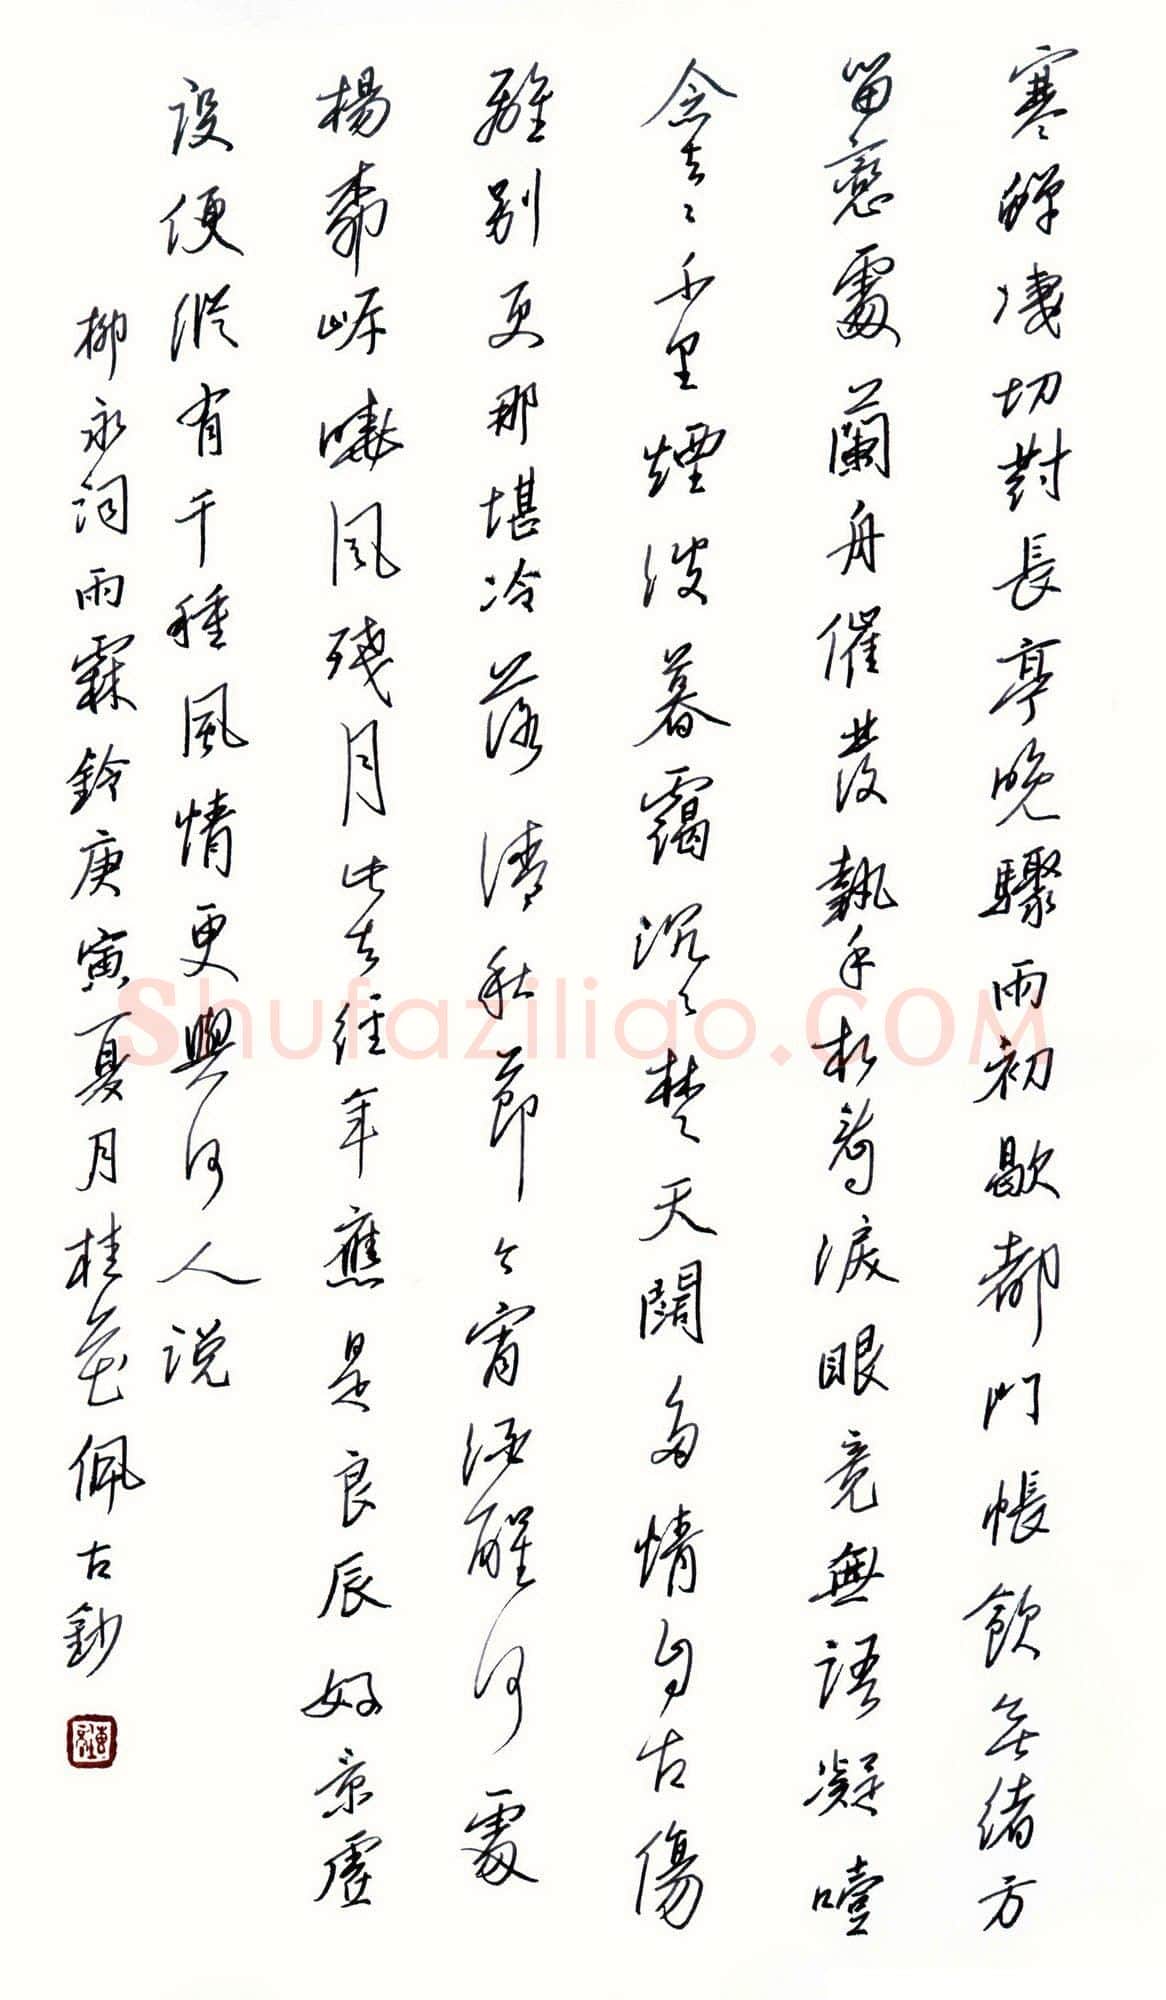 寒蟬凄切對長亭晚驟雨初歇都門帳飲無緒方
留戀處蘭舟催發執手相看淚眼竟無語凝噎
念去〻千里煙波暮靄沉〻楚天闊多情自古傷
離別更那堪冷落清秋節今宵酒醒何處
楊柳岸曉風殘月此去經年應是良辰好景虛
設便縱有千種風情更與何人説
柳永詞雨霖鈴庚寅夏月桂佩古鈔
Shufaziliao.COM